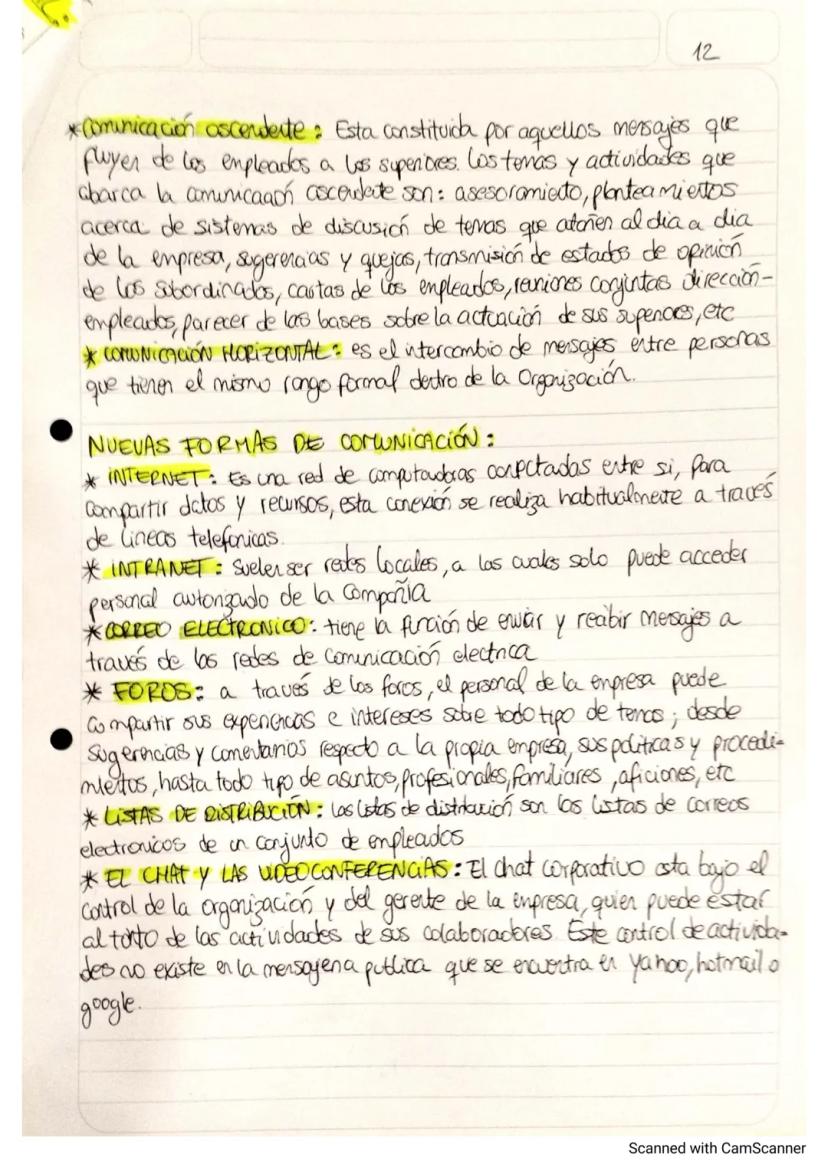 12
* Comunicación ascendente: Esta constituida por aquellos mensajes que
fluyen de los empleados a los superiores. Los temas y actividades que
abarca la comunicación ascendente son: asesoramiento, planteamientos
acerca de sistemas de discusión de temas que atañen al dia a dia
de la empresa, sugerencias y quejas, transmisión de estados de opinión
de los subordinados, cartas de los empleados, reuniones conjuntas dirección-
empleados, parecer de las bases sobre la actuación de sus superiores, etc
* COMUNICACIÓN HORIZONTAL: es el intercambio de mensajes entre personas
que tienen el mismo rango formal dentro de la Organización.
NUEVAS FORMAS DE COMUNICACIÓN:
* INTERNET: Es una red de computadoras conectadas entre si, para
compartir datos y recursos, esta conexión se realiza habitualmente a través
de lineas telefonicas.
* INTRANET: Suelen ser redes locales, a las cuales solo puede acceder
personal autorizado de la compañía
* CORREO ELECTRONICO: tiene la función de enviar y recibir mensajes a
través de las redes de comunicación electrica
* FOROS: a través de los foros, el personal de la empresa puede
compartir sus experiencias e intereses sobre todo tipo de temas; desde
sugerencias y comentarios respecto a la propia empresa, sus politicas y procedi-
mientos, hasta todo tipo de asuntos, profesionales, familiares, aficiones, etc
* LISTAS DE DISTRIBUCIÓN: las listas de distribución son las listas de correos
electronicos de un conjunto de empleados
* EL CHAT Y LAS VIDEOCONFERENCIAS: El chat corporativo esta bajo el
control de la organización y del gerente de la empresa, quien puede estar
al tanto de las actividades de sus colaboradores. Este control de activida-
des no existe en la mensajeria publica que se encuentra en yahoo, hotmail o
google.
Scanned with CamScanner